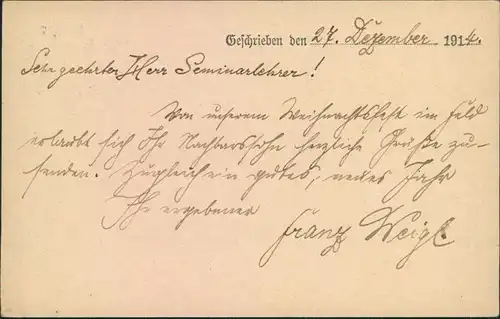 Geschrieben den 27. Dezember 1914.
Sehr geehrter Herr Seminarlehrer!
Von unserem Weihnachtsfest im Feld
erlaubt sich Ihr Nachbarssohn herzliche Grüße zu-
senden. Zugleich ein gutes, neues Jahr
Ihr ergebener
Franz Weigl